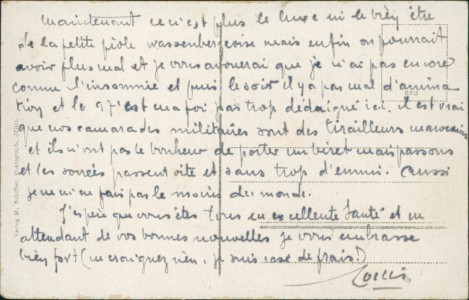 Maintenant ce n'est plus le luxe ni le bien être
de la petite piole wassenbergeoise mais enfin on pourrait
avoir plus mal et je vous avouerai que je n'ai pas encore
comme l'insomnie et puis le soir il y a pas mal d'anima
tion et le 9 7 est ma foi pas trop dédaigné ici, il est vrai
que nos camarades militaires sont des tirailleurs marocains
et ils n'ont pas le bonheur de porter un beret mais passons
et les soirées passent vite et sans trop d'ennui. Aussi
je ne m'en fais pas le moins du monde.
J'espère que vous êtes tous en excellente santé et en
attendant de vos bonnes nouvelles je vous embrasse
bien fort (ne craignez rien, je suis rasé de frais!)